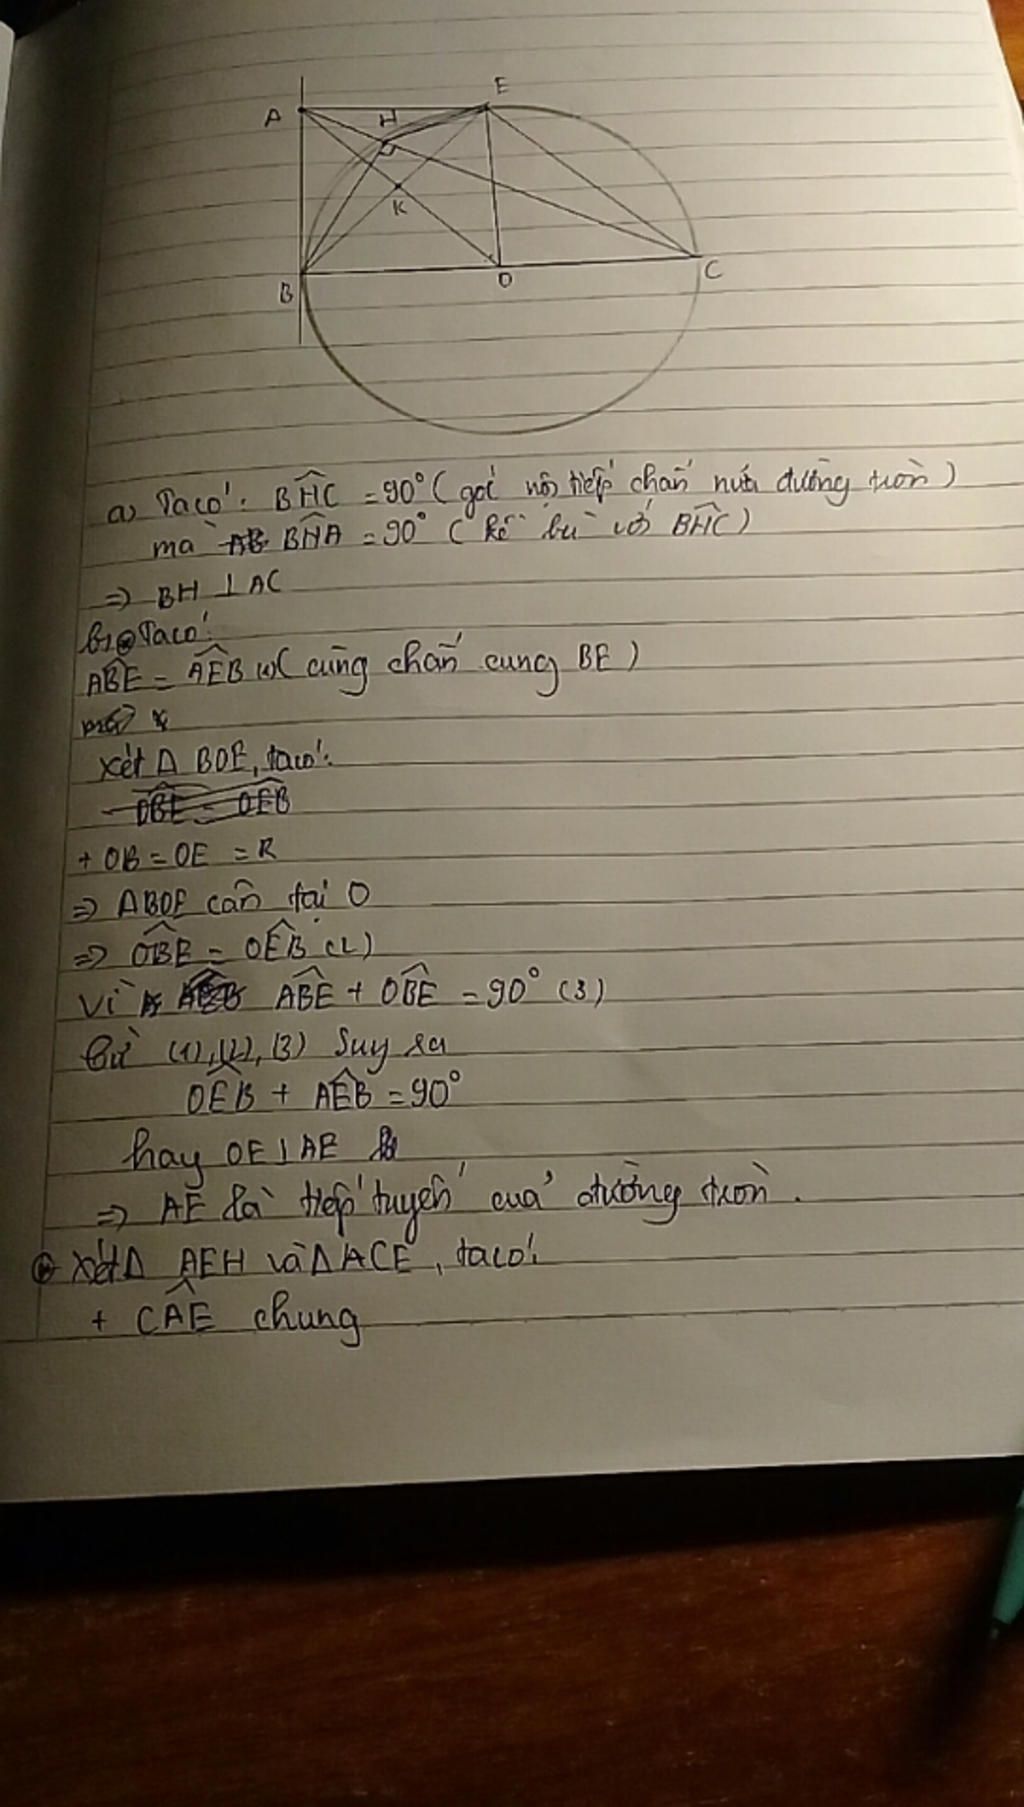 E
A
H
K
B
O
C
a) Ta có: BĤC = 90° (góc nội tiếp chắn nửa đường tròn)
mà BĤA = 90° (kề bù với BĤC)
=> BH ⊥ AC
b) Ta có:
AB̂E = AÊB (1) (cùng chắn cung BE)
xét Δ BOE, ta có:
OB̂E = OÊB
+ OB = OE = R
=> ΔBOE cân tại O
=> OB̂E = OÊB (2)
Vì AB̂E + OB̂E = 90° (3)
Từ (1), (2), (3) Suy ra
OÊB + AÊB = 90°
hay OE ⊥ AE
=> AE là tiếp tuyến của đường tròn.
Xét Δ AEH và Δ ACE, ta có:
+ CÂE chung